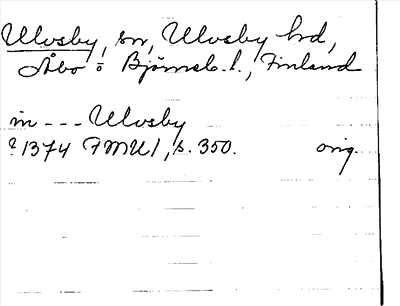 Ulvsby, sn, Ulvsby hd,
Åbo o Björneb. l., Finland
in --- Ulvsby
? 1374 FMU 1, s. 350. orig.